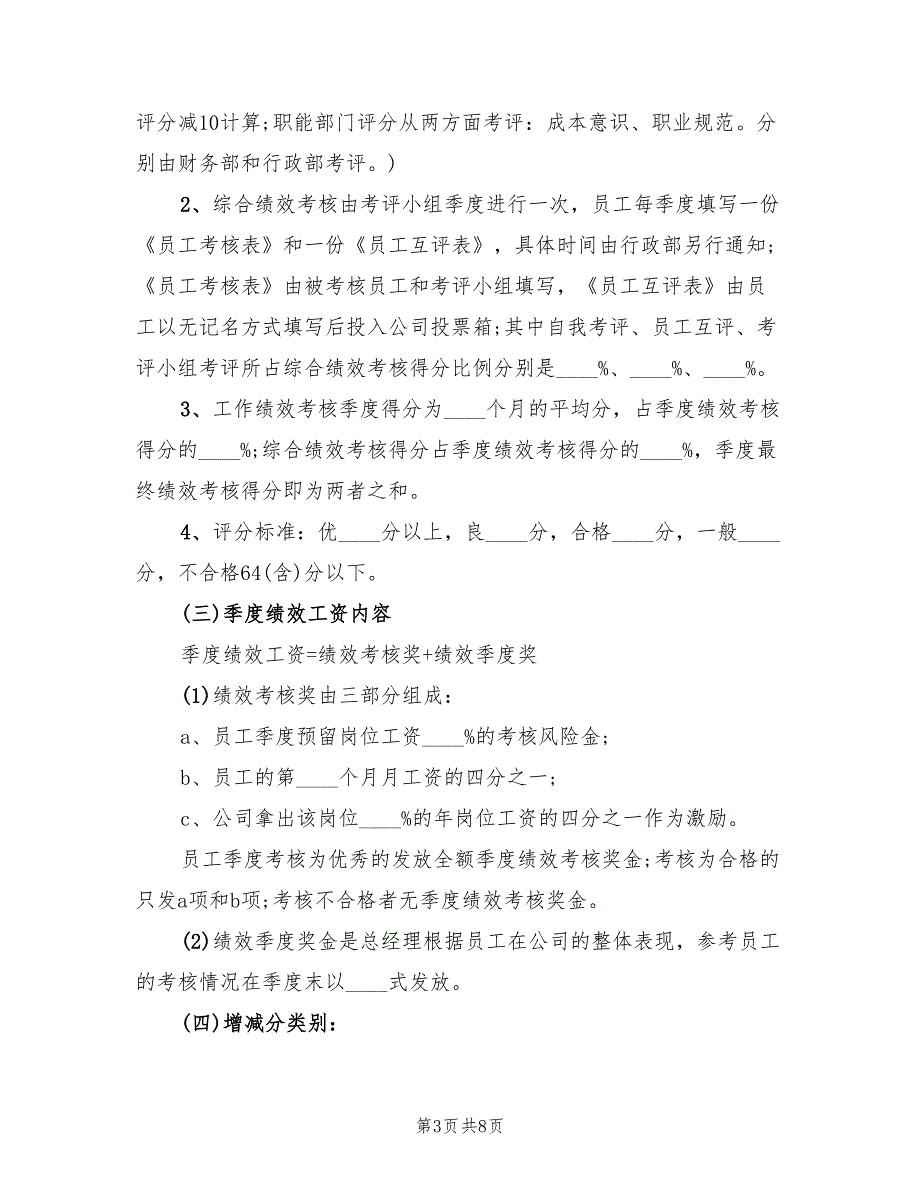 评分减10计算;职能部门评分从两方面考评：成本意识、职业规范。分
别由财务部和行政部考评。)
2、综合绩效考核由考评小组季度进行一次，员工每季度填写一份
《员工考核表》和一份《员工互评表》，具体时间由行政部另行通知;
《员工考核表》由被考核员工和考评小组填写，《员工互评表》由员
工以无记名方式填写后投入公司投票箱;其中自我考评、员工互评、考
评小组考评所占综合绩效考核得分比例分别是____%、____%、____%。
3、工作绩效考核季度得分为____个月的平均分，占季度绩效考核
得分的____%;综合绩效考核得分占季度绩效考核得分的____%，季度最
终绩效考核得分即为两者之和。
4、评分标准：优____分以上，良____分，合格____分，一般____
分，不合格64(含)分以下。
(三)季度绩效工资内容
季度绩效工资=绩效考核奖+绩效季度奖
(1)绩效考核奖由三部分组成：
a、员工季度预留岗位工资____%的考核风险金;
b、员工的第____个月月工资的四分之一;
c、公司拿出该岗位____%的年岗位工资的四分之一作为激励。
员工季度考核为优秀的发放全额季度绩效考核奖金;考核为合格的
只发a项和b项;考核不合格者无季度绩效考核奖金。
(2)绩效季度奖金是总经理根据员工在公司的整体表现，参考员工
的考核情况在季度末以____式发放。
(四)增减分类别：
第3页 共8页